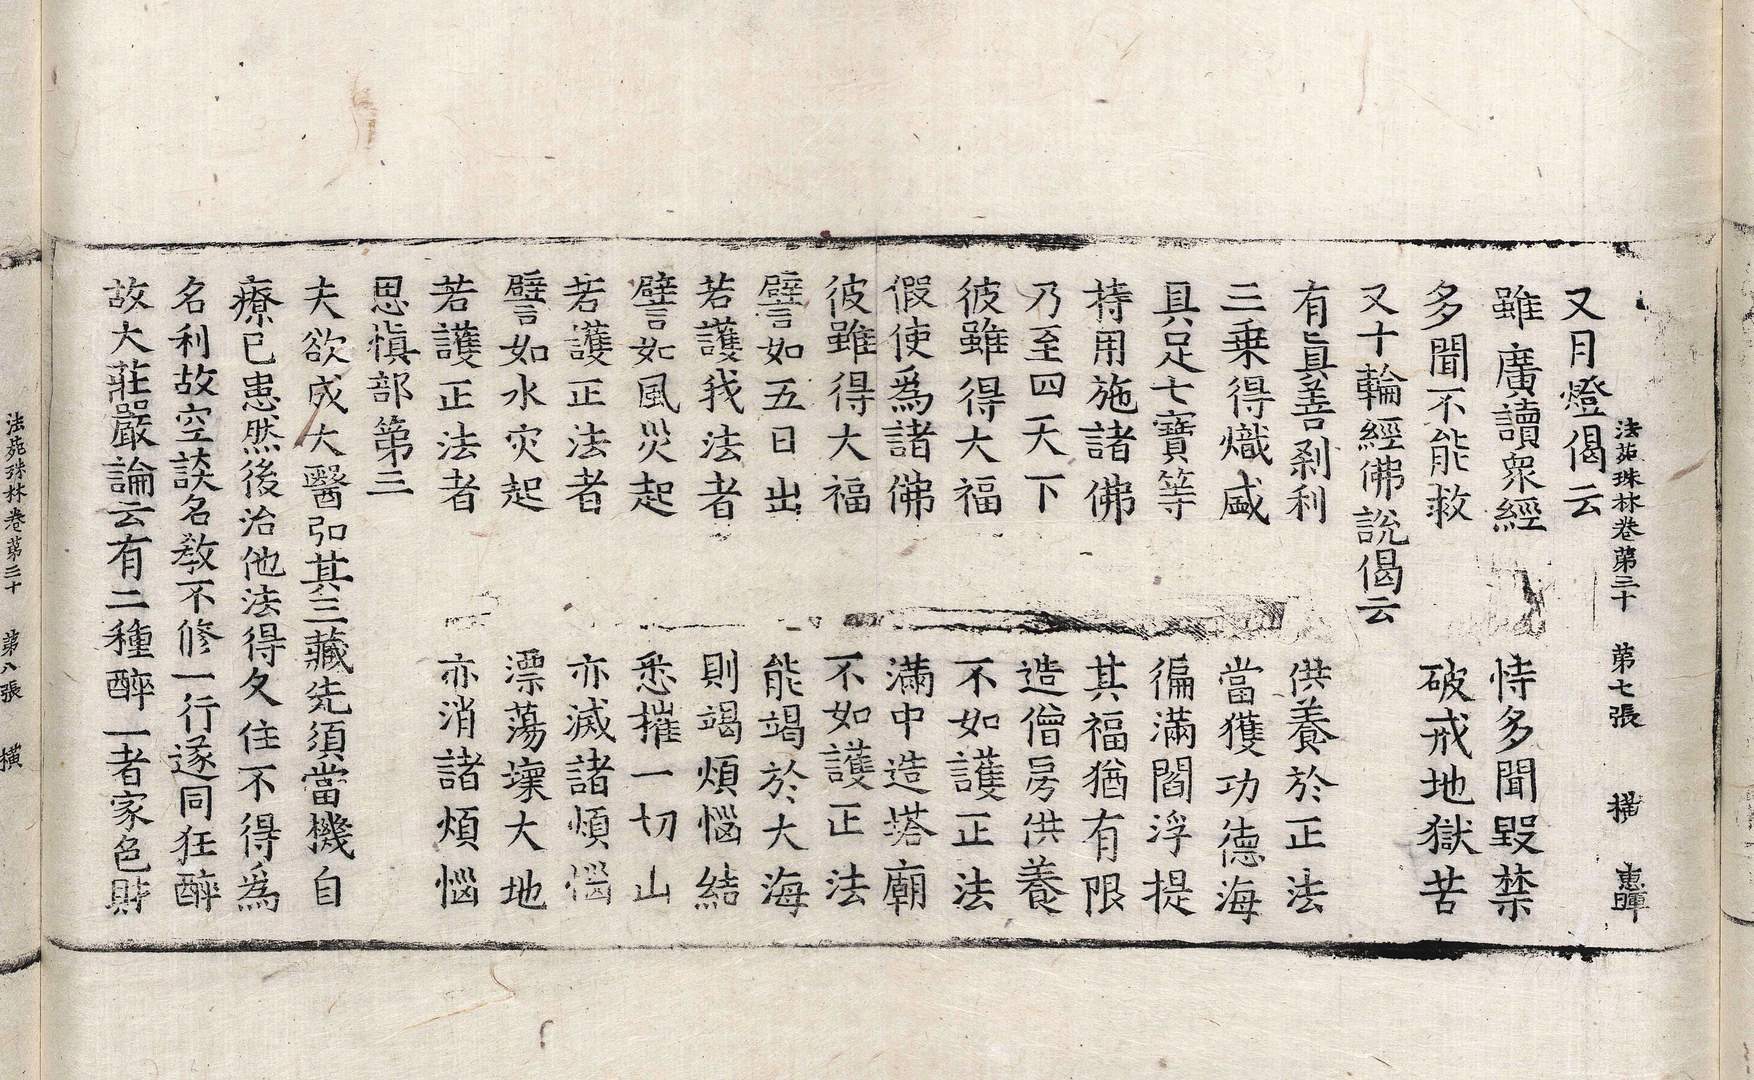 法苑珠林卷第三十 第七張 橫 惠暉
又月燈偈云
雖廣讀衆經 恃多聞毀禁
多聞不能救 破戒地獄苦
又十輪經佛說偈云
有眞善刹利 供養於正法
三乗得熾盛 當獲功德海
具足七寶等 徧滿閻浮提
持用施諸佛 其福猶有限
乃至四天下 造僧房供養
彼雖得大福 不如護正法
假使爲諸佛 滿中造塔廟
彼雖得大福 不如護正法
譬如五日出 能竭於大海
若護我法者 則竭煩惱結
譬如風災起 悉摧一切山
若護正法者 亦滅諸煩惱
譬如水灾起 漂蕩壞大地
若護正法者 亦消諸煩惱
思愼部第三
夫欲成大醫弘其三藏先須當機自
療已患然後治他法得久住不得爲
名利故空談名教不修一行遂同狂醉
故大莊嚴論云有二種醉一者家色財
法苑珠林卷第三十 第八張 橫